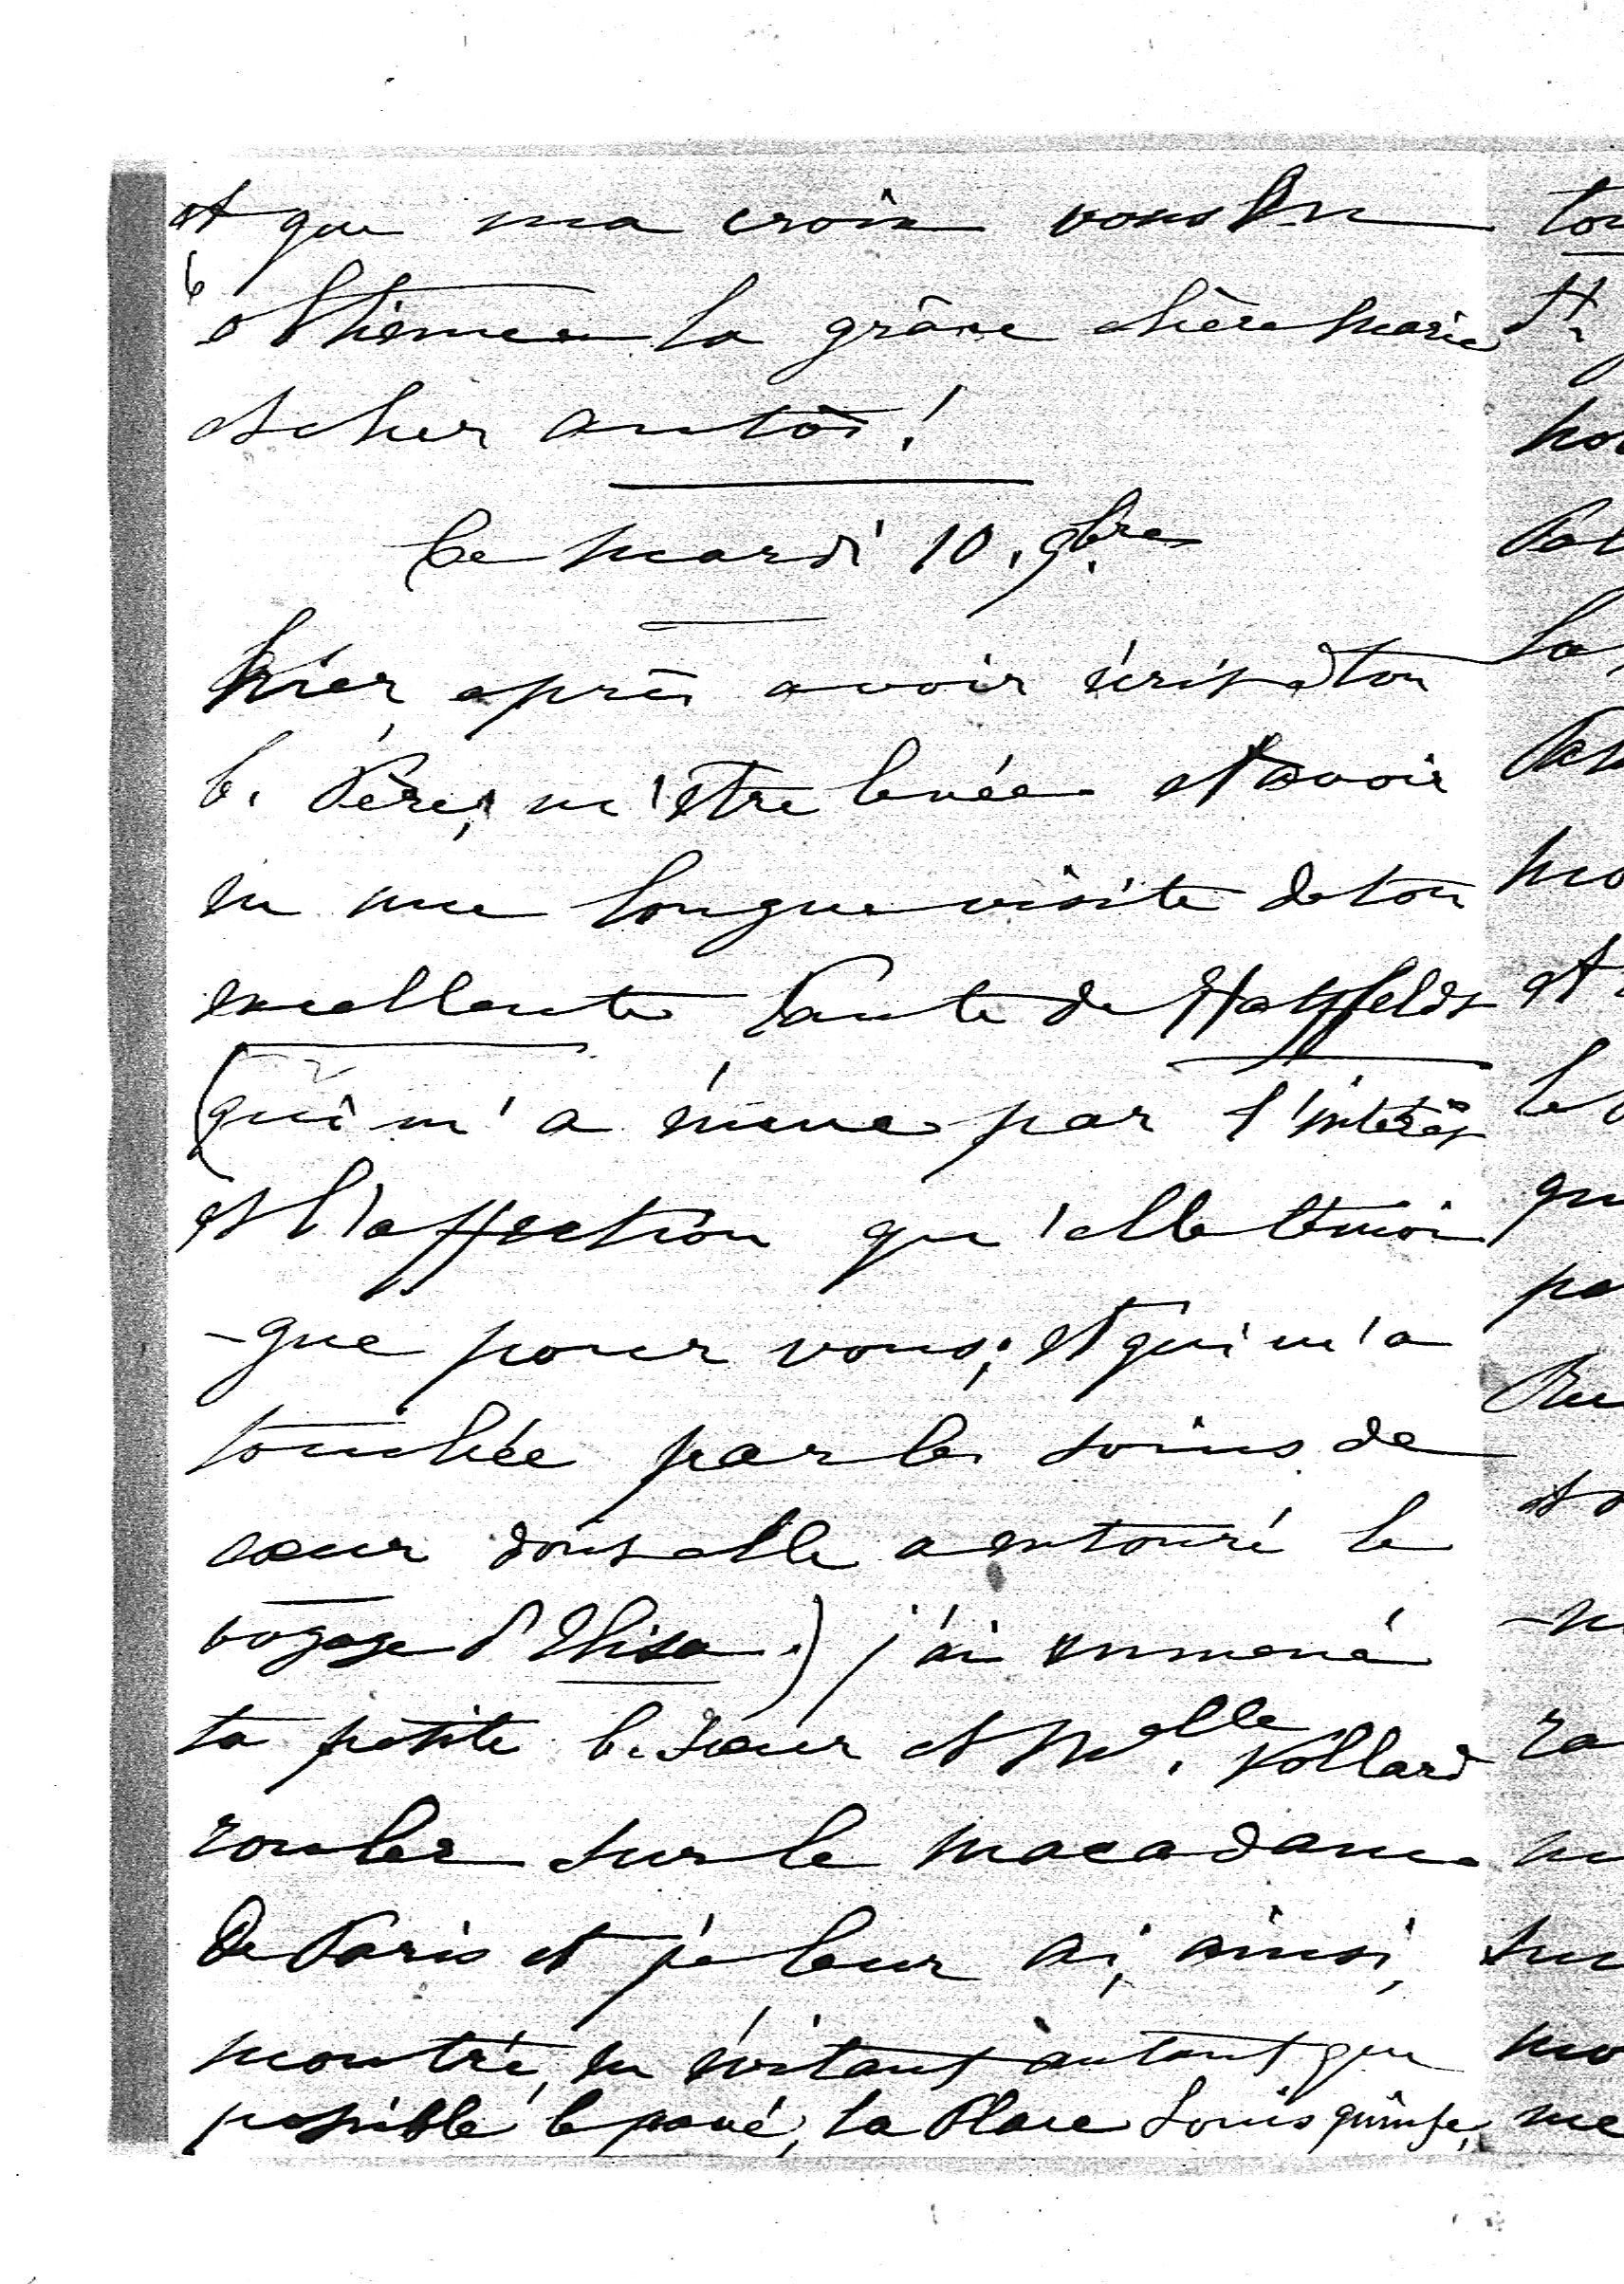 et que ma croix vous en
obtienne la grâce chère Marie
et cher Antoi!
Ce mardi 10. 9bre
hier, après avoir écrit à ton
b. Père, m'être levée et avoir
eu une longue visite de ton
excellente Tante de Hatzfeldt
(qui m'a émue par l'intérêt
et l'affection qu'elle témoi
-gne pour vous; et qui m'a
touchée par les soins de
cœur dont elle a entouré le
voyage d'Elisa.) j'ai emmené
ta petite b. sœur et Melle. Vollard
rouler sur le macadam
de Paris et je leur ai, ainsi,
montré, en évitant autant que
possible le pavé, la Place Louis quinze,